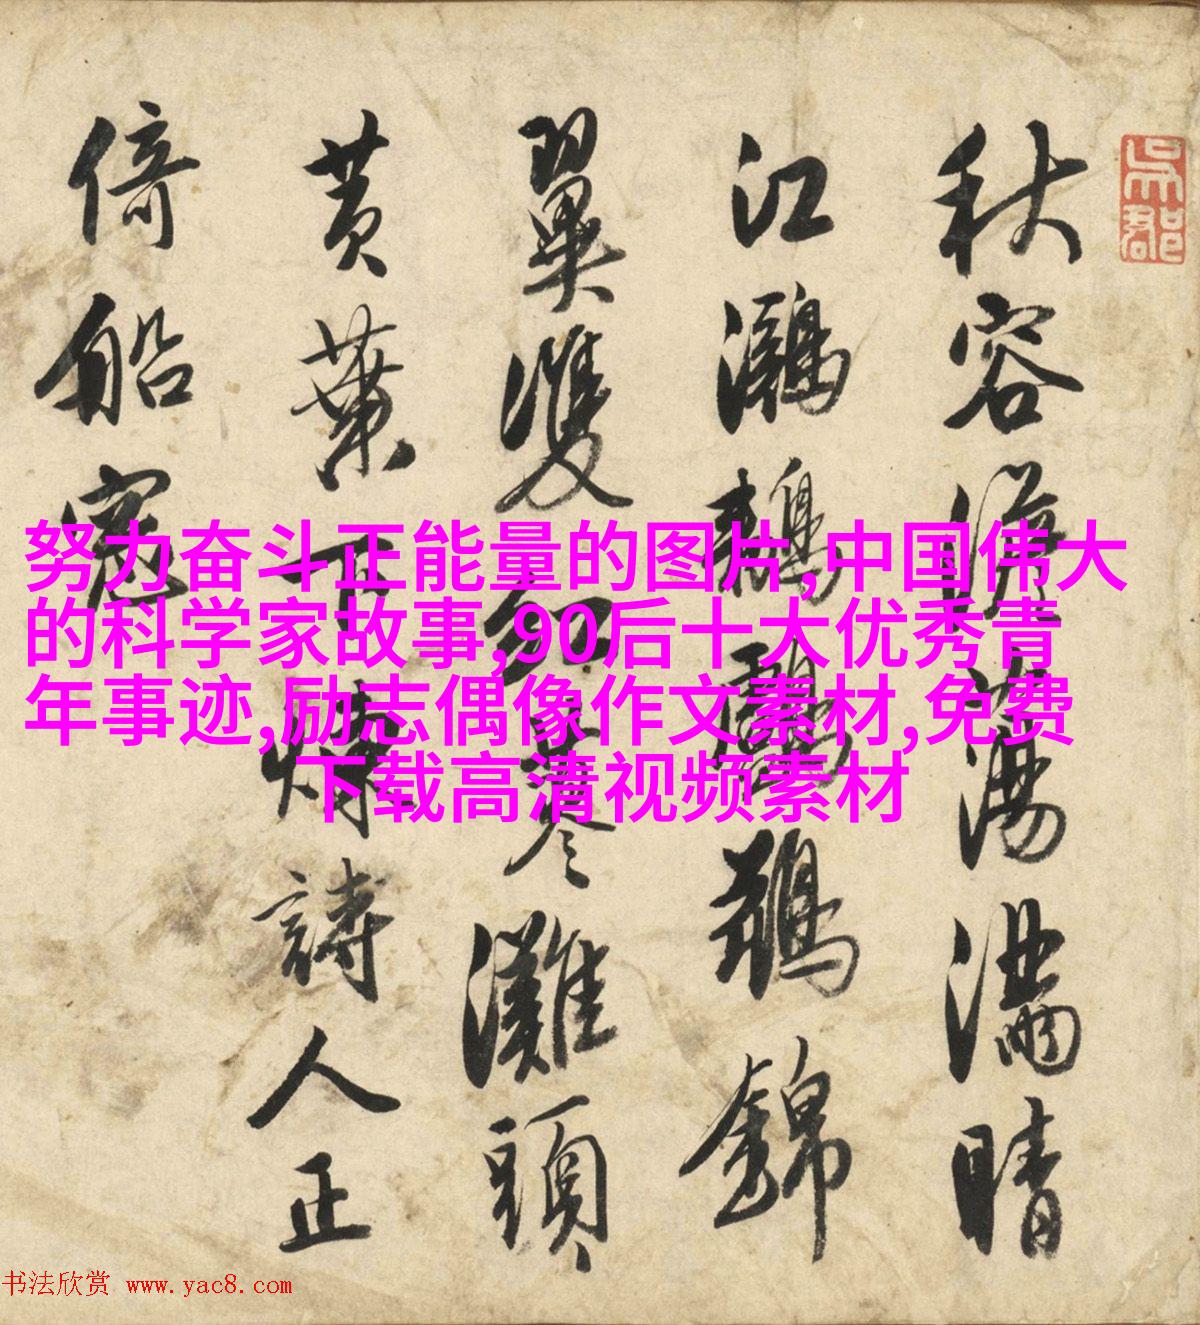 吳郡
秋容滿晴
江鸂鶒鸕鶿錦
翼雙紅蓼灘頭
黃葉下詩人正
倚船窓
努力奋斗正能量的图片,中国伟大
的科学家故事,90后十大优秀青
年事迹,励志偶像作文素材,免费
下载高清视频素材
书法欣赏 www.yac8.com